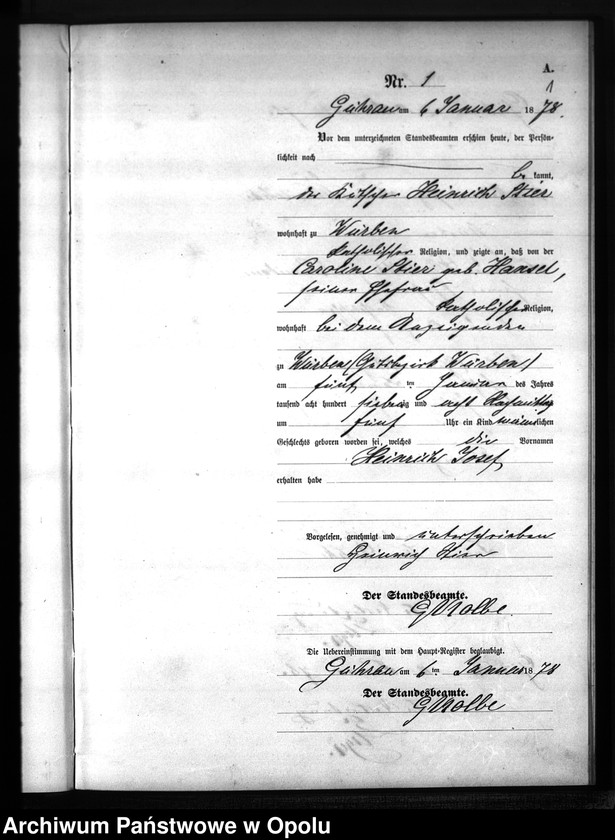 A.
Nr. 1
1
Guhrau am 6 Januar 1878.
Vor dem unterzeichneten Standesbeamten erschien heute, der Persön-
lichkeit nach
be kannt,
der Kutscher Heinrich Stier
wohnhaft zu Würben
katholischer Religion, und zeigte an, daß von der
Caroline Stier geb. Hansel,
seiner Ehefrau
katholischer Religion,
wohnhaft bei dem Anzeigenden
zu Würben (Gutsbezirk Würben)
am fünf ten Januar des Jahres
tausend acht hundert siebenzig und acht Nachmittag
um fünf Uhr ein Kind männlichen
Geschlechts geboren worden sei, welches die Vornamen
Heinrich Josef
erhalten habe
Vorgelesen, genehmigt und unterschrieben
Heinrich Stier
Der Standesbeamte.
GNolbe
Die Uebereinstimmung mit dem Haupt-Register beglaubigt.
Guhrau am 6 ten Januar 1878
Der Standesbeamte.
GNolbe
Archiwum Państwowe w Opolu